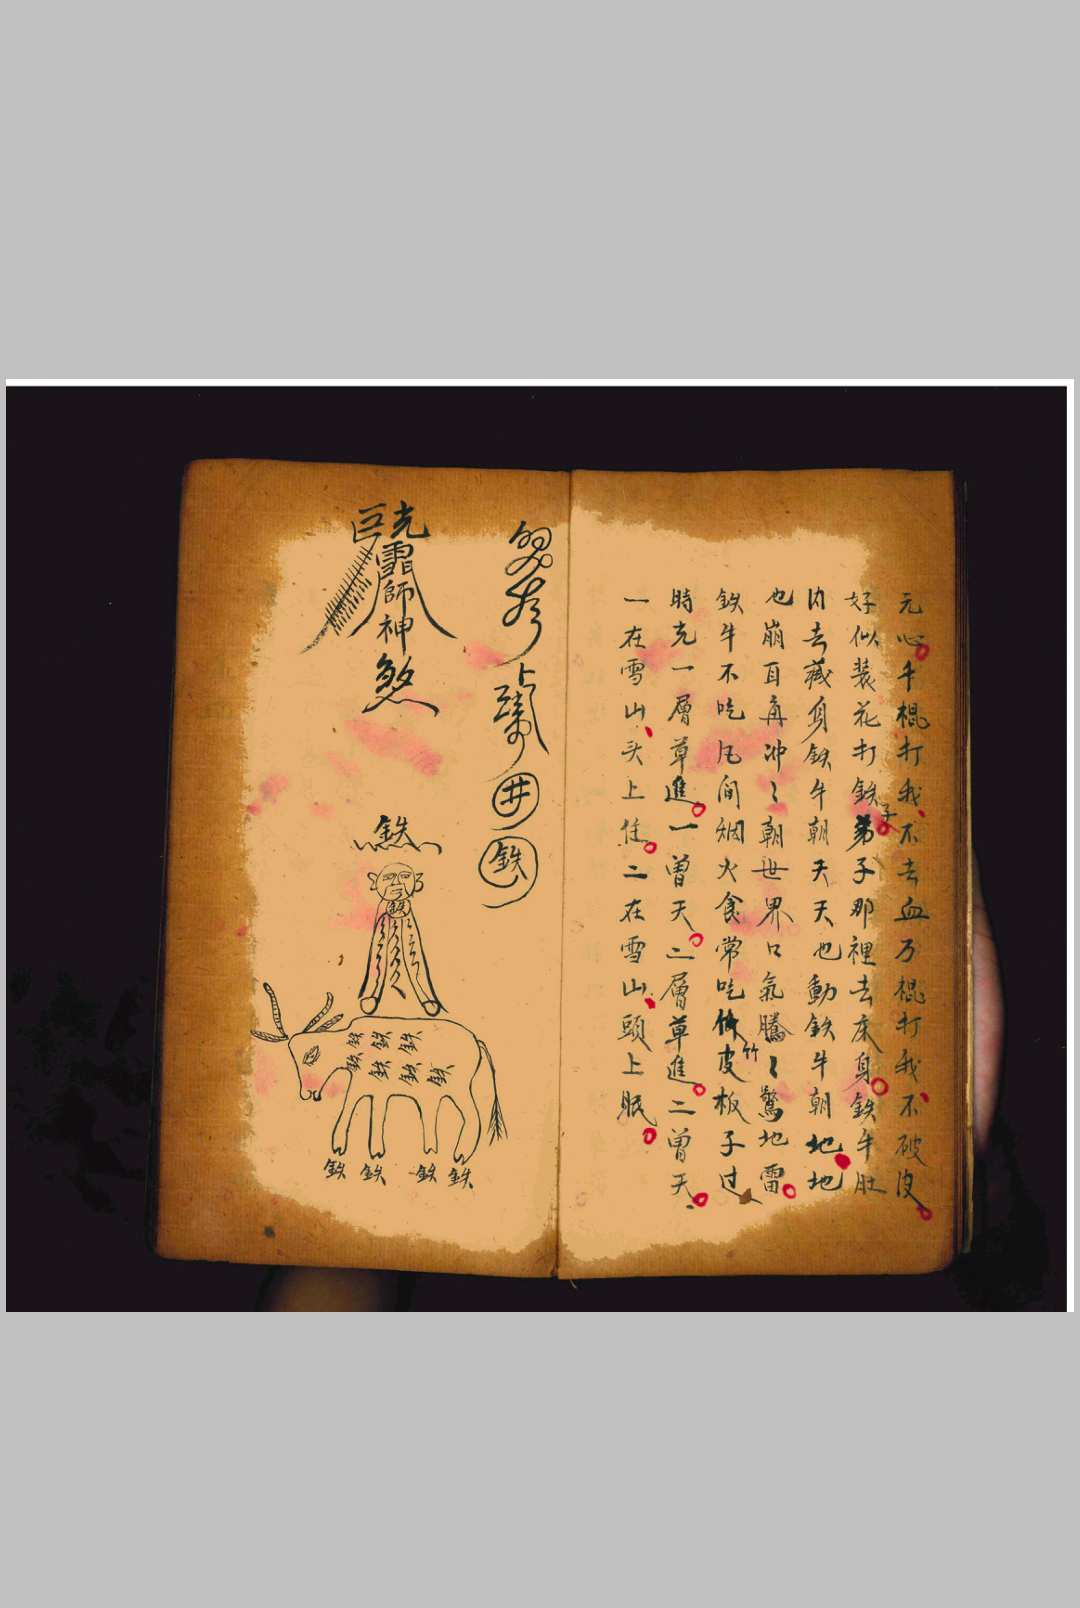 元心千棍打我不去血万棍打我不破皮
好似装花打鉄子弟子那裡去床身鉄牛肚
内去藏身鉄牛朝天天也動鉄牛朝地地
也崩耳再冲〻朝世界口氣騰〻驚地雷
鉄牛不吃凡间烟火食常吃竹皮板子过
時光一層草進一曾天二層草進二曾天
一在雪山头上住二在雪山頭上眠
井
鉄
光
巨
霜
師
神
煞
鉄
鉄鉄鉄
鉄鉄鉄鉄
鉄鉄鉄鉄